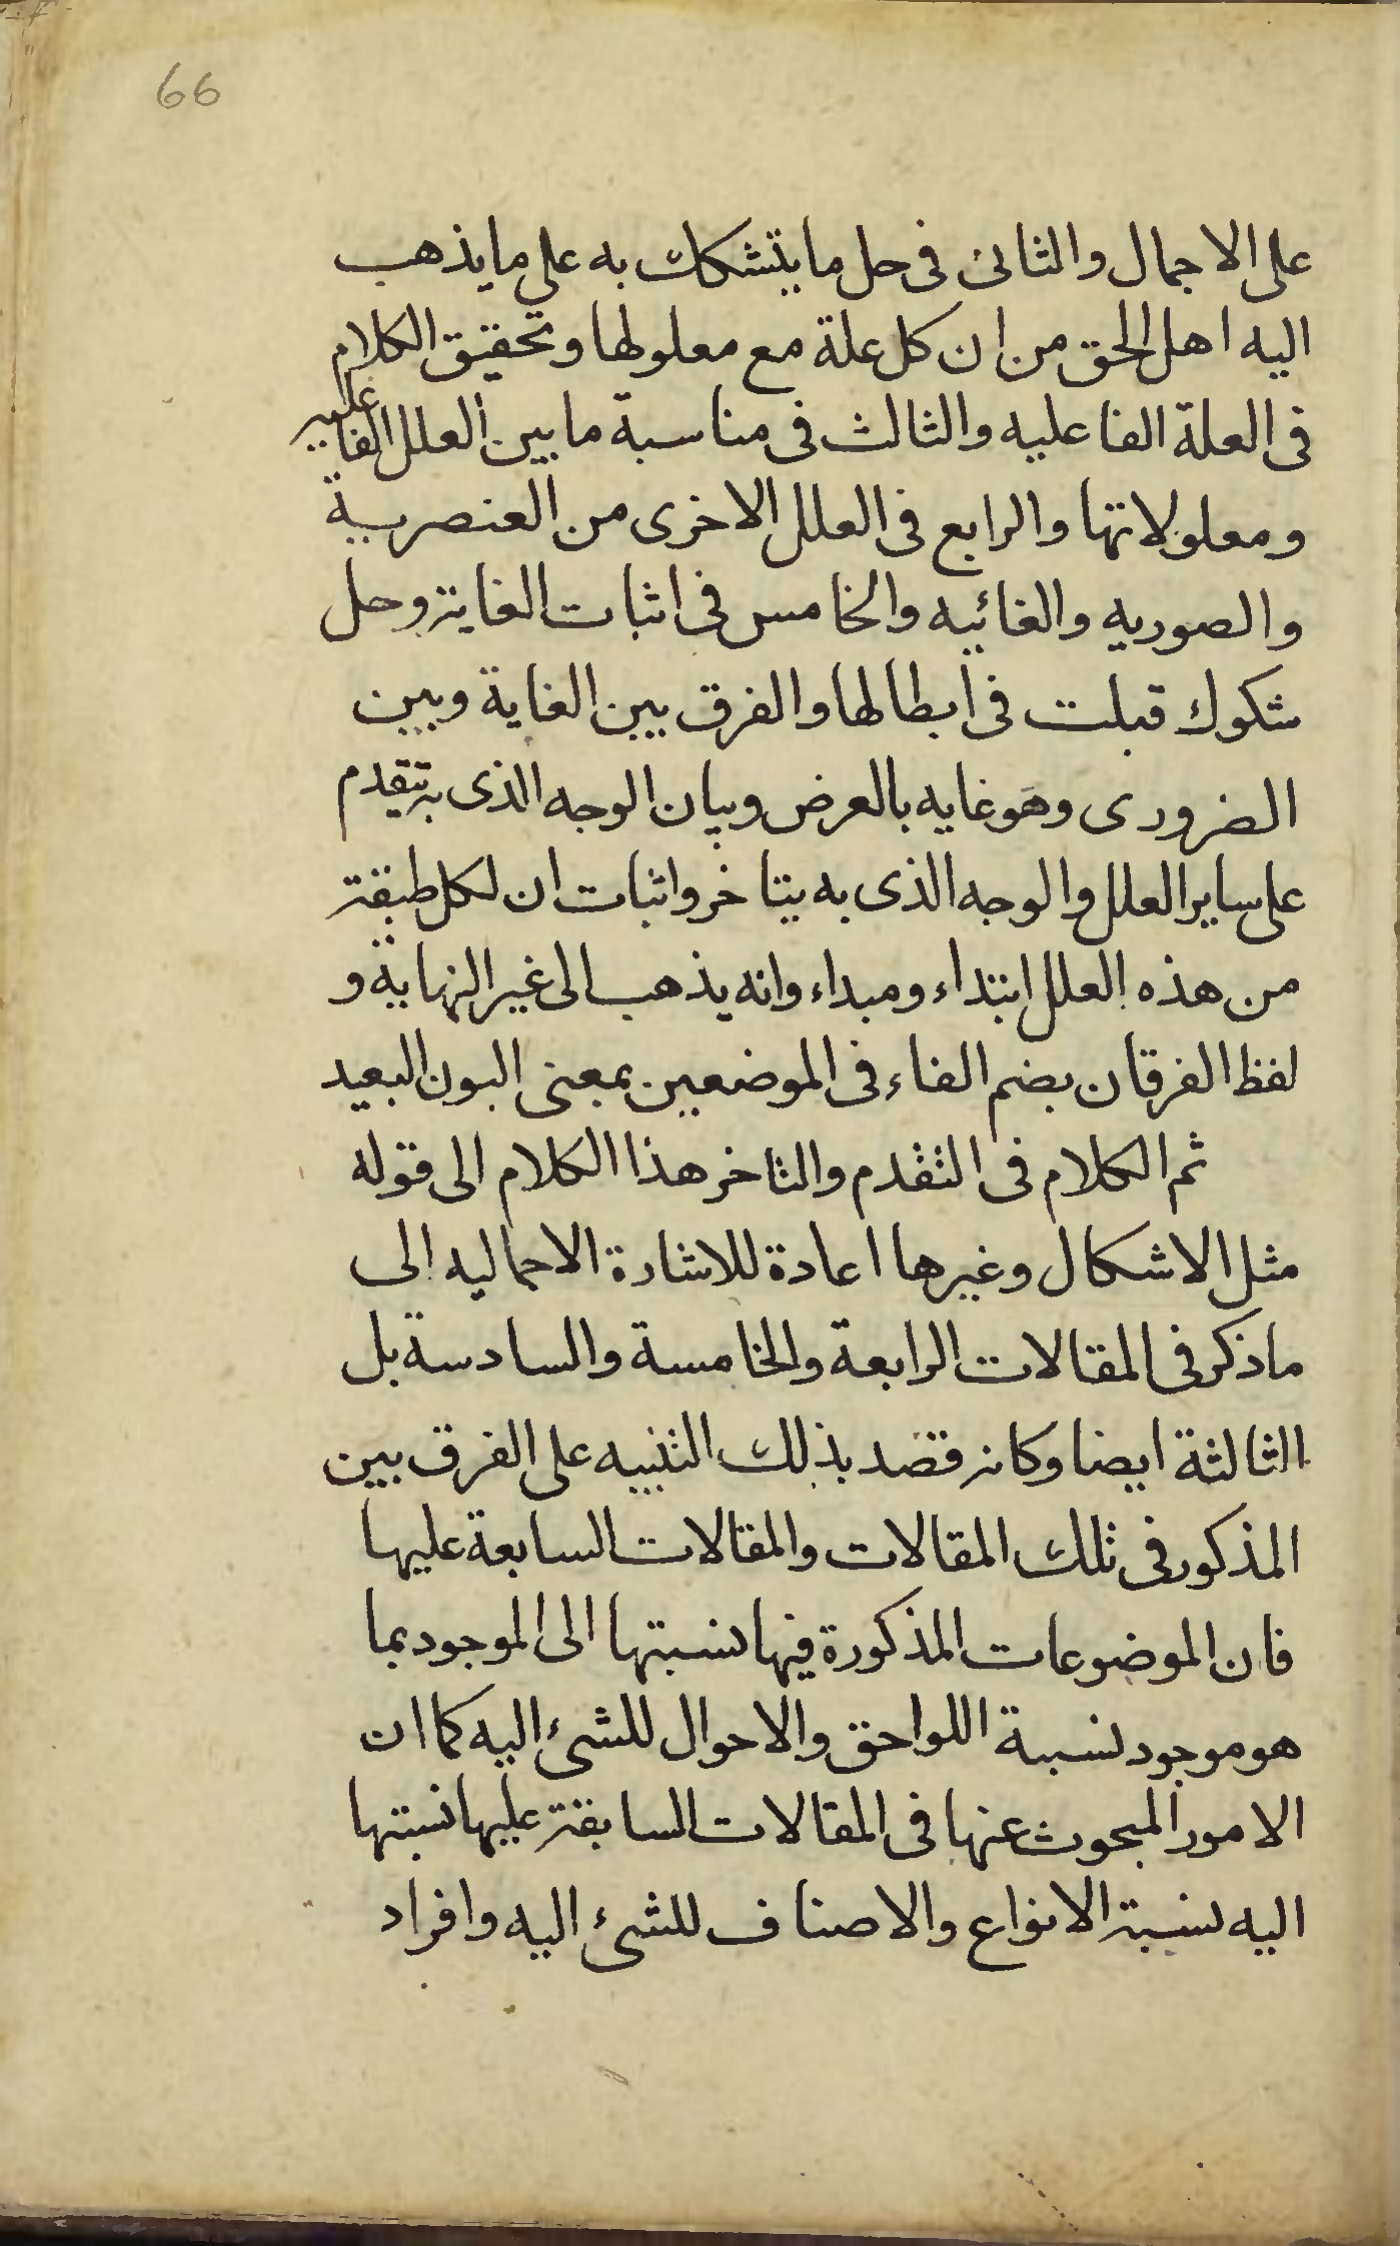 66
على الاجمال والثانى فى حل ما يتشكك به على ما يذهب
اليه اهل الحق من ان كل علة مع معلولها وتحقيق الكلام
فى العلة الفاعليه والثالث فى مناسبة ما بين العلل الفاعليه
ومعلولاتها والرابع فى العلل الاخرى من العنصرية
والصوريه والغائيه والخامس فى اثبات الغاية وحل
شكوك قيلت فى ابطالها والفرق بين الغاية وبين
الضرورى وهو غايه بالعرض وبيان الوجه الذى به تتقدم
على ساير العلل والوجه الذى به يتاخر واثبات ان لكل طبقة
من هذه العلل ابتداء ومبداء وانه يذهب الى غير النهاية و
لفظ الفرقان بضم الفاء فى الموضعين بمعنى البون البعيد
ثم الكلام فى التقدم والتاخر هذا الكلام الى قوله
مثل الاشكال وغيرها اعادة للاشارة الاجماليه الى
ماذكر فى المقالات الرابعة والخامسة والسادسة بل
الثالثة ايضا وكانه قصد بذلك التنبيه على الفرق بين
المذكور فى تلك المقالات والمقالات السابعة عليها
فان الموضوعات المذكورة فيها نسبتها الى الموجود بما
هو موجود نسبة اللواحق والاحوال للشئ اليه كما ان
الامور المبحوث عنها فى المقالات السابقة عليها نسبتها
اليه نسبة الانواع والاصناف للشئ اليه وافراد